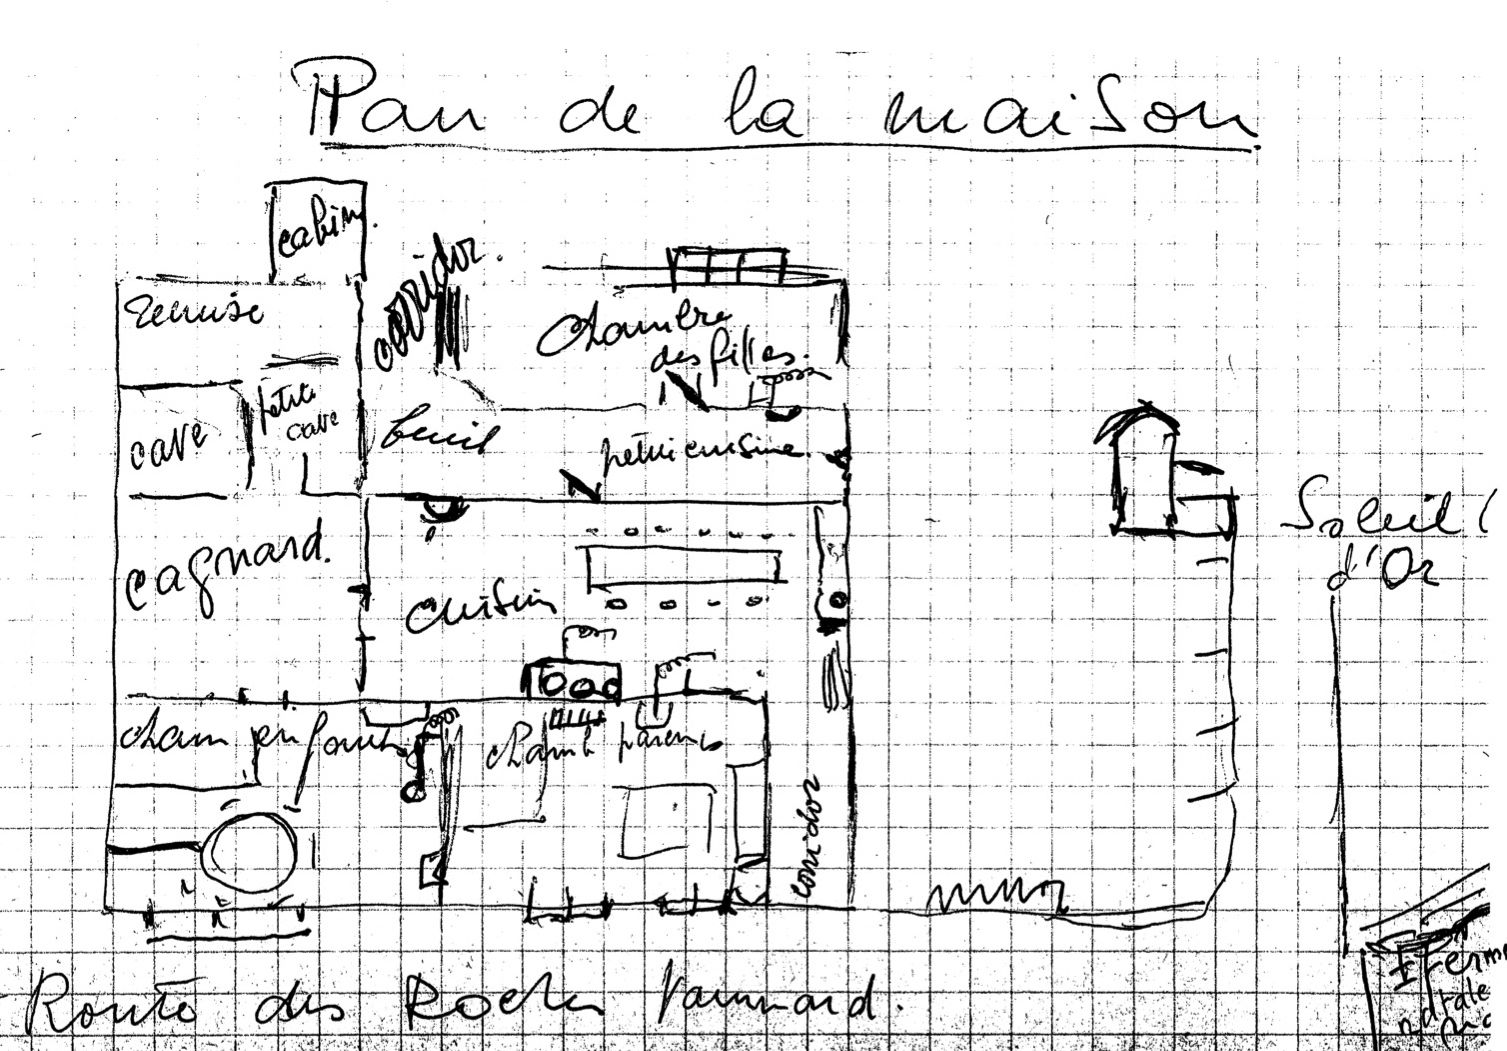 Plan de la maison
cabin.
corridor.
Remise
Chambre
des filles.
petite
cave
cave
petite cuisine.
cagnard.
Cuisin
Soleil
d'Or
cham enfants
chamb parents
corridor
mur
Route des Roches
Ferme